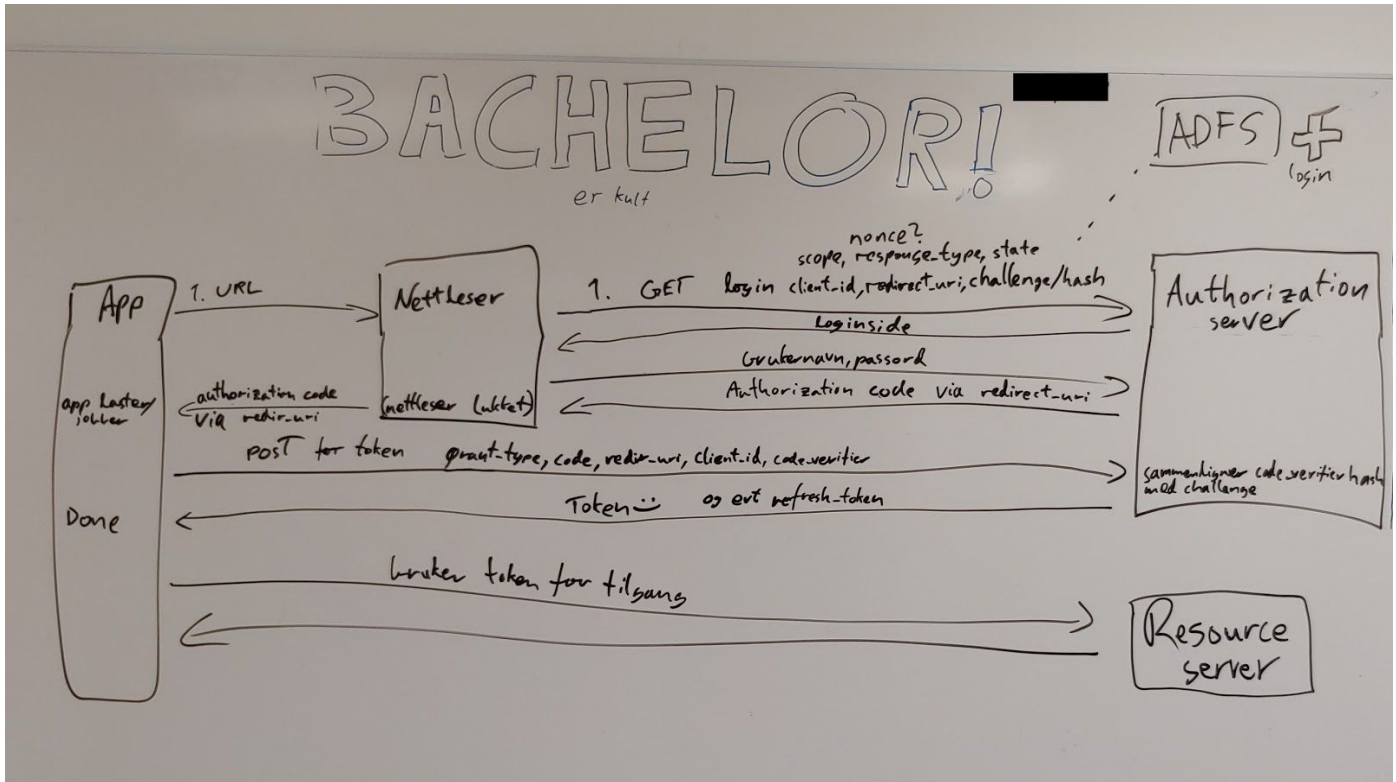 BACHELOR!
er kult
ADFS
login
nonce?
scope, response_type, state
App
1. URL
Nettleser
1. GET login client_id, redirect_uri, challenge/hash
Authorization
server
Loginside
brukernavn, passord
Authorization code via redirect_uri
app laster/
jobber
authorization code
via redir_uri
(nettleser lukket)
POST for token grant_type, code, redir_uri, client_id, code_verifier
sammenligner code_verifier hash
med challenge
Token og evt refresh_token
Done
bruker token for tilgang
Resource
server